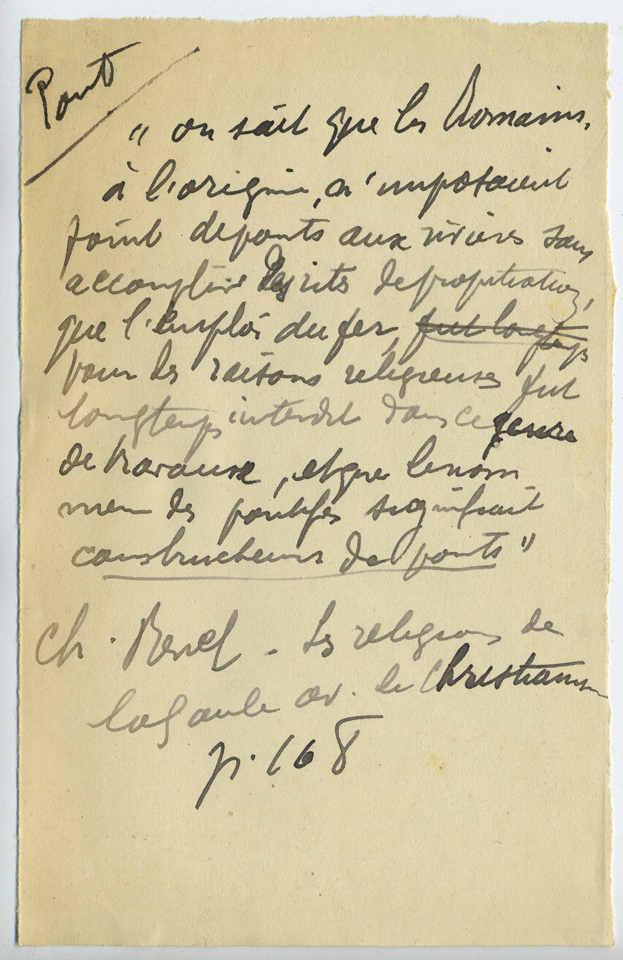 Pont
" on sait que les Romains,
à l'origine, n'imposaient
point de ponts aux rivières sans
accomplir des rits de propitiation,
que l'emploi du fer, fut longtemps
pour des raisons religieuses fut
longtemps interdit dans ce genre
de travaux, et que le nom
meme des pontifes signifiait
constructeurs de ponts "
Ch. Renel - Les religions de
la Gaule av. le Christianisme
p. 168